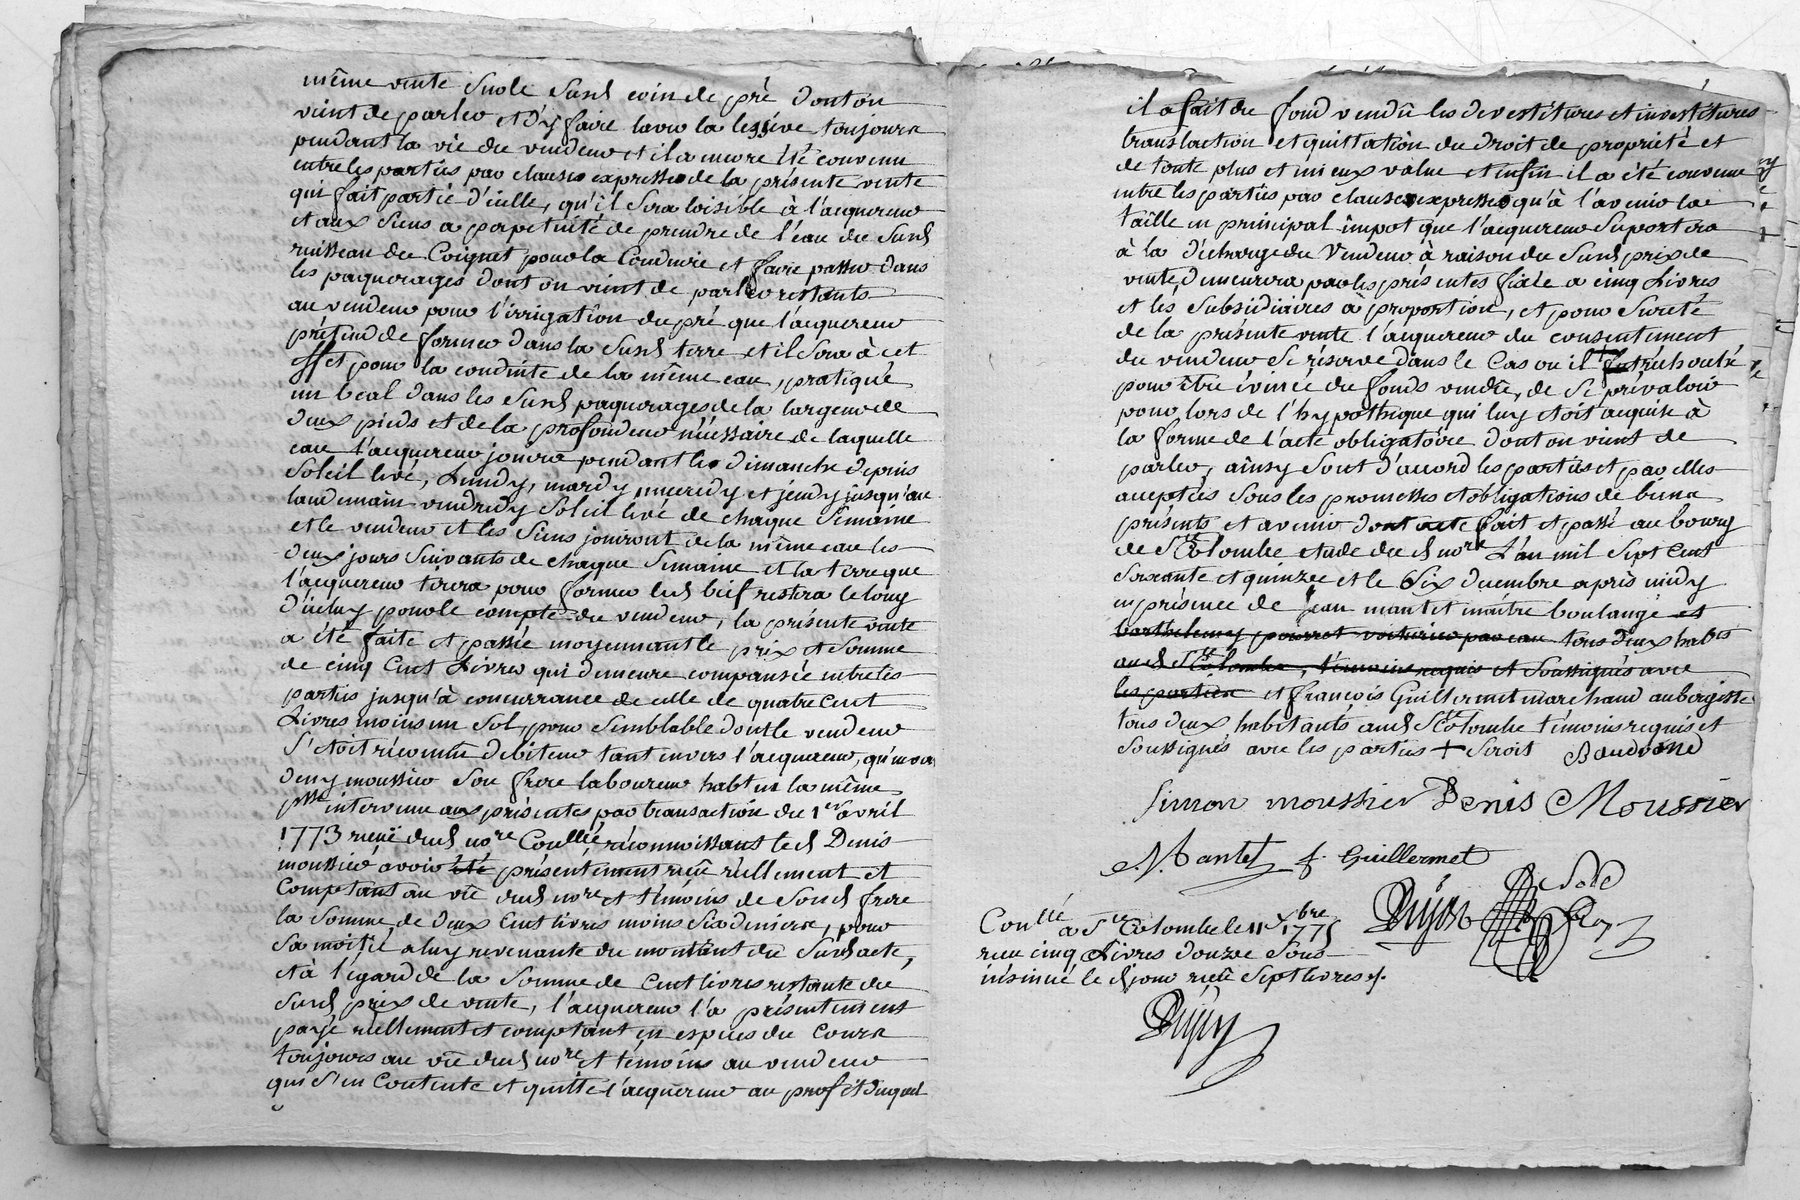 même vente sur le susd coin de pré dont on
vient de parler et d'y faire laver la lessive toujours
pendant la vie du vendeur et il a encore été convenu
entre les parties par clauses expresses de la présente vente
qui fait partie d'icelle, qu'il sera loisible à l'acquereur
et aux siens a perpetuité de prendre de l'eau du susd
ruisseau du Coignet pour la Conduire et faire passer dans
les paquerages dont on vient de parler restants
au vendeur pour l'irrigation du pré que l'acquereur
prétend de former dans la susd terre et il sera à cet
effet pour la conduite de la même eau, pratiqué
un béal dans les susd paquerages de la largeur de
deux pieds et de la profondeur nécessaire de laquelle
eau l'acquereur jouira pendant les dimanche depuis
soleil levé, Lundy, mardy, mercredy et jeudy jusqu'au
landemain vendredy soleil levé de chaque semaine
et le vendeur et les siens jouiront de la même eau les
deux jours suivants de chaque semaine et la terre que
l'acquereur tirera pour former led bief restera le long
d'iceluy pour le compte du vendeur, la présente vente
a été faite et passée moyennant le prix et somme
de cinq cent Livres qui demeure compensée entre les
parties jusqu'à concurrance de celle de quatre cent
Livres moins un sol, pour semblable dont le vendeur
s'étoit reconnu débiteur tant envers l'acquereur, qu'envers
deny moussier son frere laboureur habt en la même
psse intervenu aux présentes par transaction du 1er avril
1773 receue dud nore Coullié, réconnoissant led Denis
moussier avoir été présentement receu réellement et
comptant au vû dud nore et témoins de sond frere
la somme de deux cent livres moins six deniers, pour
sa moitié a luy revenante du montant du susd acte,
et à l'égard de la somme de cent livres restante du
susd prix de vente, l'acquereur l'a présentement
payé réellement et comptant en especes du cours
toujours au vû dud nore et témoins au vendeur
qui s'en contente et quitte l'acquereur au profit duquel
il a fait du fond vendû les devestitures et investitures
translaction et quittation du droit de propriété et
de toute plus et mieux value et enfin il a été convenu
entre les parties par clauses expresses qu'à l'avenir la
taille en principal impot que l'acquereur suportera
à la décharge du Vendeur à raison du susd prix de
vente, demeurera par les présentes fixée a cinq Livres
et les subsidiaires à proportion, et pour sureté
de la présente vente l'acquereur du consentement
du vendeur se réserve dans le Cas ou il troublé
pour être évincé du fonds vendû, de se prévaloir
pour lors de l'hypotheque qui luy étoit acquise à
la forme de l'acte obligatoire dont on vient de
parler, ainsy sont d'accord les parties et par elles
acceptées sous les promesses et obligations de biens
présents et avenir dont acte fait et passé au bourg
de Ste Colombe etude dud nore L'an mil sept cent
soixante et quinze et le six decembre après midy
en présence de jean mantet maître boulangé et
barthelemy pourrot voiturier par eau tous deux habts
aud Ste Colombe, témoins requis et soussignés avec
les parties et françois Guillermet marchand aubergiste
tous deux habitants aud Ste Colombe témoins requis et
soussignés avec les parties + seroit
Simon moussier Denis Moussier
Mantet f. Guillermet
Conllé à Ste Colombe le 11 xbre 1775
receu cinq Livres douze sous
insinué le d jour receu sept livres